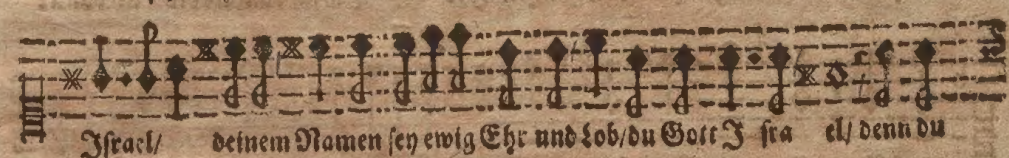 Jſrael/ deinem Namen ſey ewig Ehr und Lob/du Gott J ſra el/ denn du